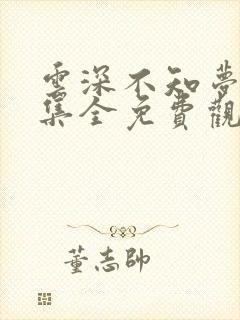 雲深不知夢
集全免費觀
董志帥